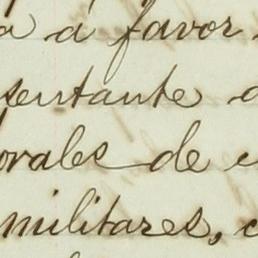 a á favor
sentante
orales de
militares,